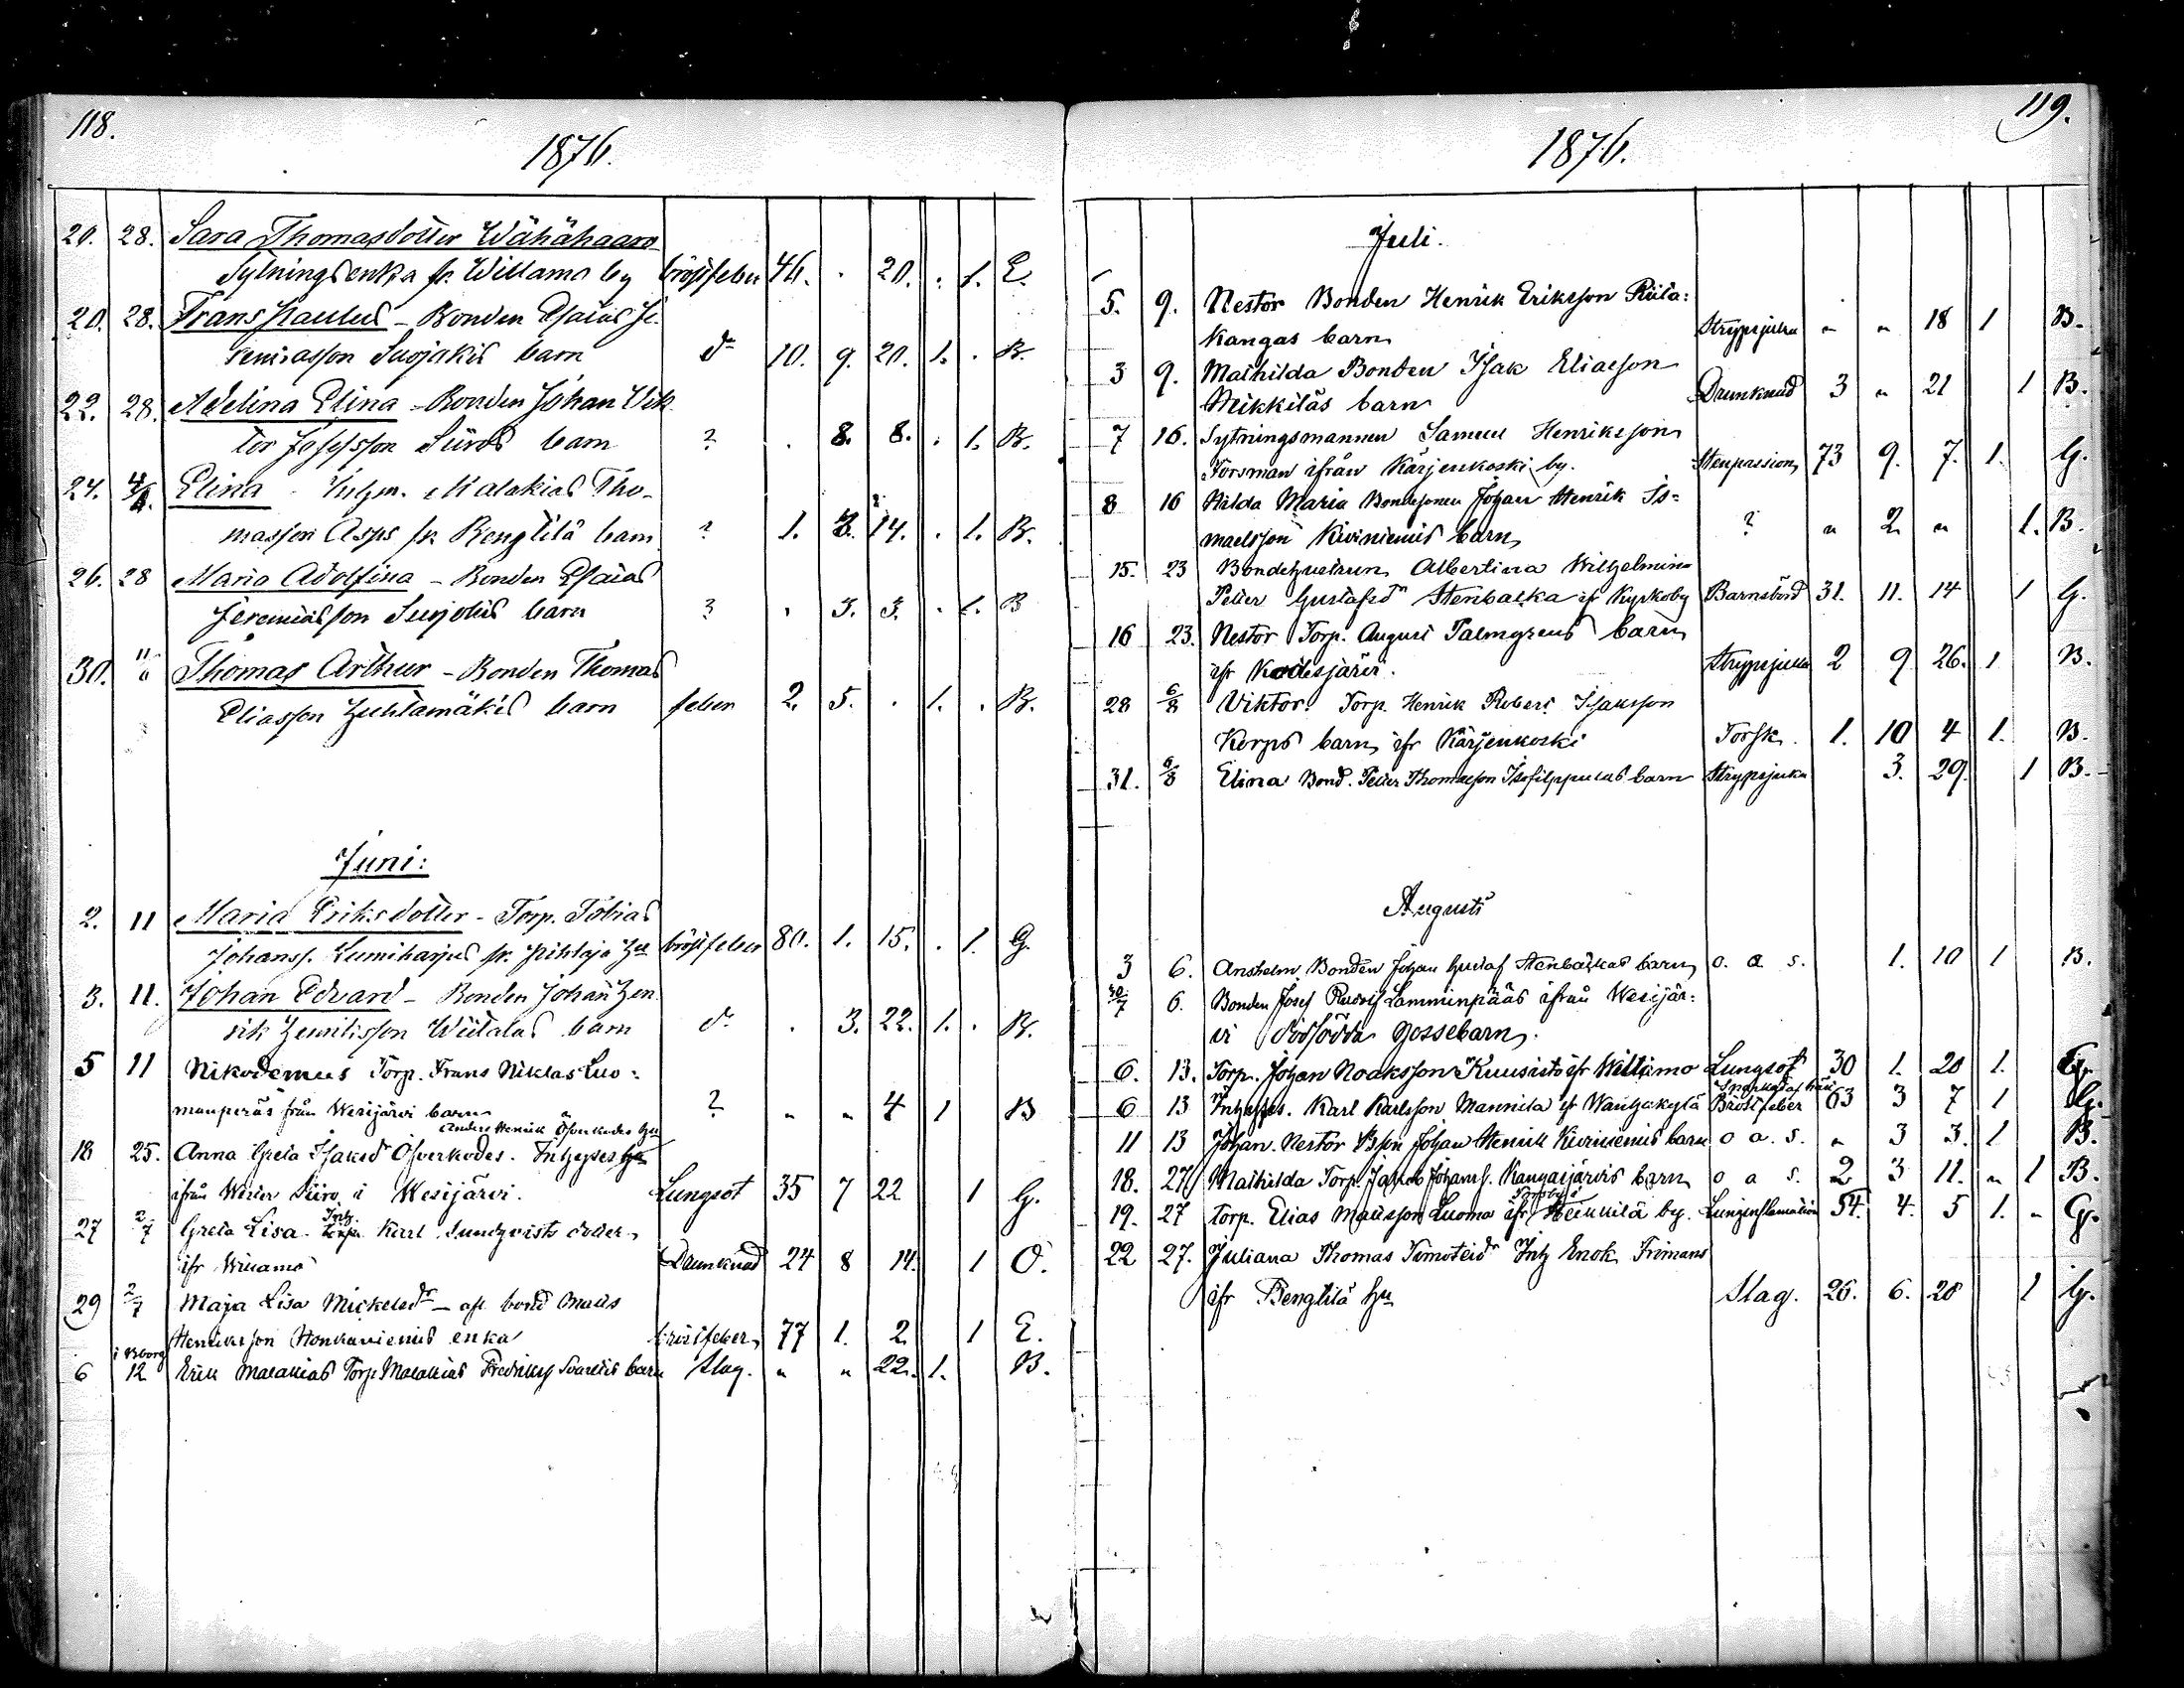 118.
1876.
20. 28. Sara Thomasdotter Wähähaaro
Sytningsenka fr. Willamo by bröstfeber 46. . 20. . 1. E.
20. 28. Frans Paulus - Bonden Esaias Je-
remiasson Suojokis barn do 10. 9. 20. 1. . B.
22. 28. Adelina Elina - Bonden Johan Vik
tor Josefsson Siiros barn ? . 8. 8. . 1. B.
24. 4/6. Elina - Inhm. Malakias Tho-
masson Asps fr Bengtilä barn ? 1. 3. 14. . 1. B.
26. 28 Maria Adolfina - Bonden Esaias
Jeremiasson Suojokis barn ? . 3. 3. . 1. B
30. 11/6 Thomas Arthur - Bonden Thomas
Eliasson Huhtamäkis barn feber 2. 5. . 1. . B.
Juni:
2. 11 Maria Eriksdotter - Torp. Tobias
Johanss. Lumiharjus fr. Pihlaja hu bröstfeber 80. 1. 15. . 1. G.
3. 11. Johan Edvard - Bonden Johan Hen
rik Henriksson Wiitalas barn do . 3. 22. 1. . B.
5 11 Nikodemus Torp. Frans Niklas Luo-
manperäs från Wesijärvi barn ? " " 4 1 B
Anders Henrik Öfverkodes hu
18 25. Anna Greta Isaksdr Öfverkodes. Inhyses hu
ifrån Wester Siiro i Wesijärvi. Lungsot 35 7 22 1 G.
27 2/7 Greta Lisa Inh. Torp. Karl Sundqvists dotter
ifr Willamo Drunknad 24 8 14. 1 O.
29 2/7 Maja Lisa Mickelsdr - afl. bond Matts
Henriksson Honkaniemis enka bröstfeber 77 1. 2 1 E.
6 i Bborg 12 Erik Malakias Torp. Malakias Fredrikss Svartis barn Slag. " " 22. 1. B.
119.
1876.
Juli.
5. 9. Nestor Bonden Henrik Eriksson Riita=
kangas barn Strypsjuka " " 18 1 B.
3 9. Mathilda Bonden Isak Eliasson
Mikkiläs barn Drunknad 3 " 21 1 B.
7 16. Sytningsmannen Samuel Henriksson
Forsman ifrån Kärjenkoski by. Stenpassion 73 9. 7. 1. G.
8 16 Hilda Maria Bondesonen Johan Henrik Is=
maelsson Kiviniemis barn ? " 2 " 1. B.
15. 23 Bondehustrun Albertina Wilhelmina
Petter Gustafsdr Stenbacka ifr Kyrkoby Barnsbörd 31. 11. 14 1 G.
16 23. Nestor Torp. August Palmgrens barn
ifr Kodesjärvi. Strypsjuka 2 9 26. 1 B.
28 6/8 Viktor Torp. Henrik Robert Isaksson
Korpis barn ifr Kärjenkoski Torsk. 1. 10 4 1. B.
31. 6/8 Elina Bond. Petter Thomasson Isofilppulas barn Strypsjuka 3. 29. 1 B.
Augusti
3 6. Anshelm Bonden Johan Gustaf Stenbackas barn o. a s. 1. 10 1 B.
30/7 6. Bonden Josef Rudolf Lamminpääs ifrån Wesijär=
vi dödfödda gossebarn.
6. 13. Torp. Johan Noaksson Kuusisto ifr Willamo Lungsot 30 1. 20 1. G.
6 13 Inhyses. Karl Karlsson Mannila ifr Wanhakylä Bröstfeber 63 3 7 1 G.
11 13 Johan Nestor Bson Johan Henrik Kiviniemis barn o a. s. " 3 3. 1 B.
18. 27 Mathilda Torp. Jakob Johanss. Kangasjärvis barn o a s. 2 3 11. " 1 B.
19. 27 torp. Elias Mattsson Luoma ifr Heikkilä by. Lunginflamation 54. 4. 5 1. " G.
22 27. Juliana Thomas Timoteidr Inh Enok Frimans
ifr Bengtilä hu Slag. 26. 6. 28 1 G.